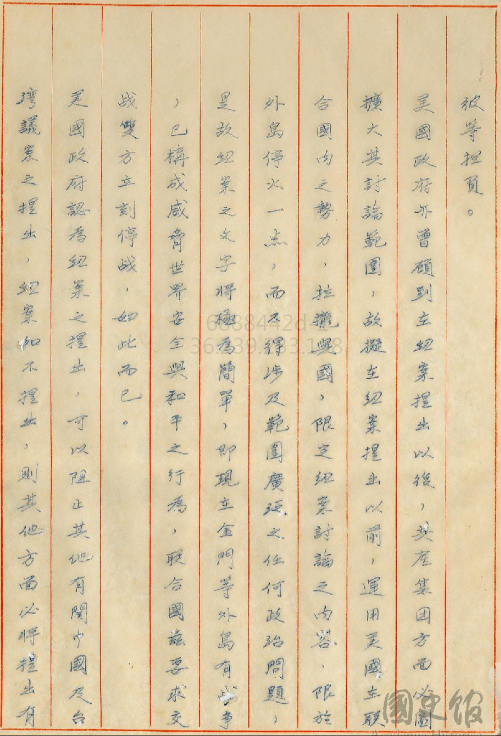 彼等担負。
美國政府亦曾顧到在紐案提出以後，共產集团方面必圖
擴大其討論範圍，故擬在紐案提出以前，運用美國在联
合國内之势力，拉攏與國，限定紐案討論之内容，限於
外島停火一点，而不得涉及範圍廣泛之任何政治問題，
是故紐案之文字将極為簡單，即現在金門等外島有战争
，已構成威脅世界安全與和平之行為，联合國茲要求交
战雙方立刻停战，如此而已。
美國政府認為紐案之提出，可以阻止其他有関中國及台
灣議案之提出，紐案如不提出，則其他方面必将提出有
國史館